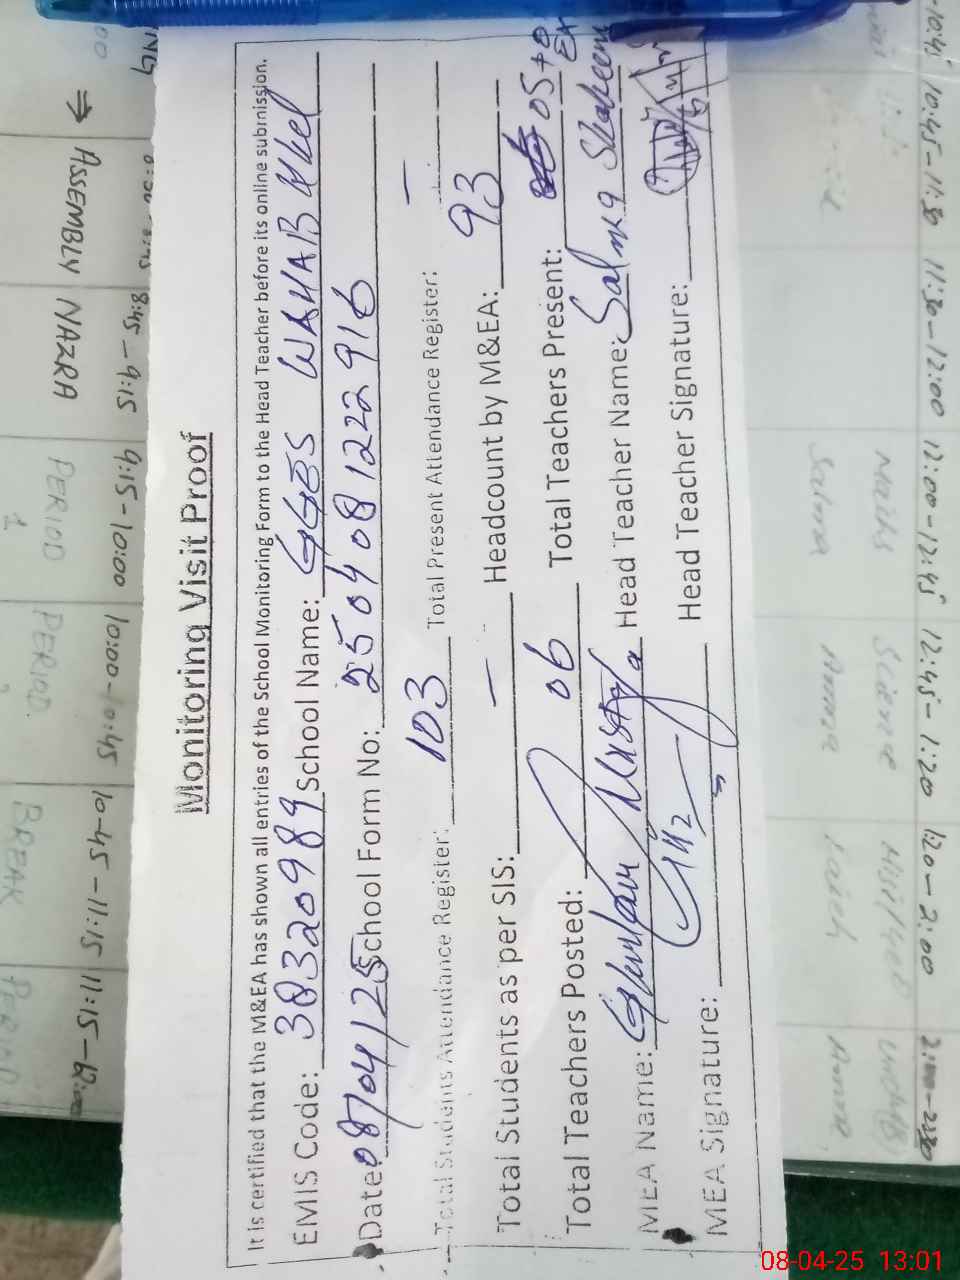 Monitoring Visit Proof
It is certified that the M&EA has shown all entries of the School Monitoring Form to the Head Teacher before its online submission.
EMIS Code: 38320989 School Name: GGES WAHAB Khel
Date: 08/04/25 School Form No: 2504081222916
Total Students Attendance Register: 103 Total Present Attendance Register: —
Total Students as per SIS: — Headcount by M&EA: 93
Total Teachers Posted: 06 Total Teachers Present: 05+0
MEA Name: Ghulam Head Teacher Name: Salma Shaheen
MEA Signature: Head Teacher Signature:
⇒ ASSEMBLY NAZRA PERIOD 1 PERIOD BREAK PERIOD
8:45 - 9:15 9:15-10:00 10:00-10:45 10-45-11:15 11:15-
10:45-11:30 11:30-12:00 12:00-12:45 12:45-1:20 1:20-2:00
Salma
Science
08-04-25 13:01